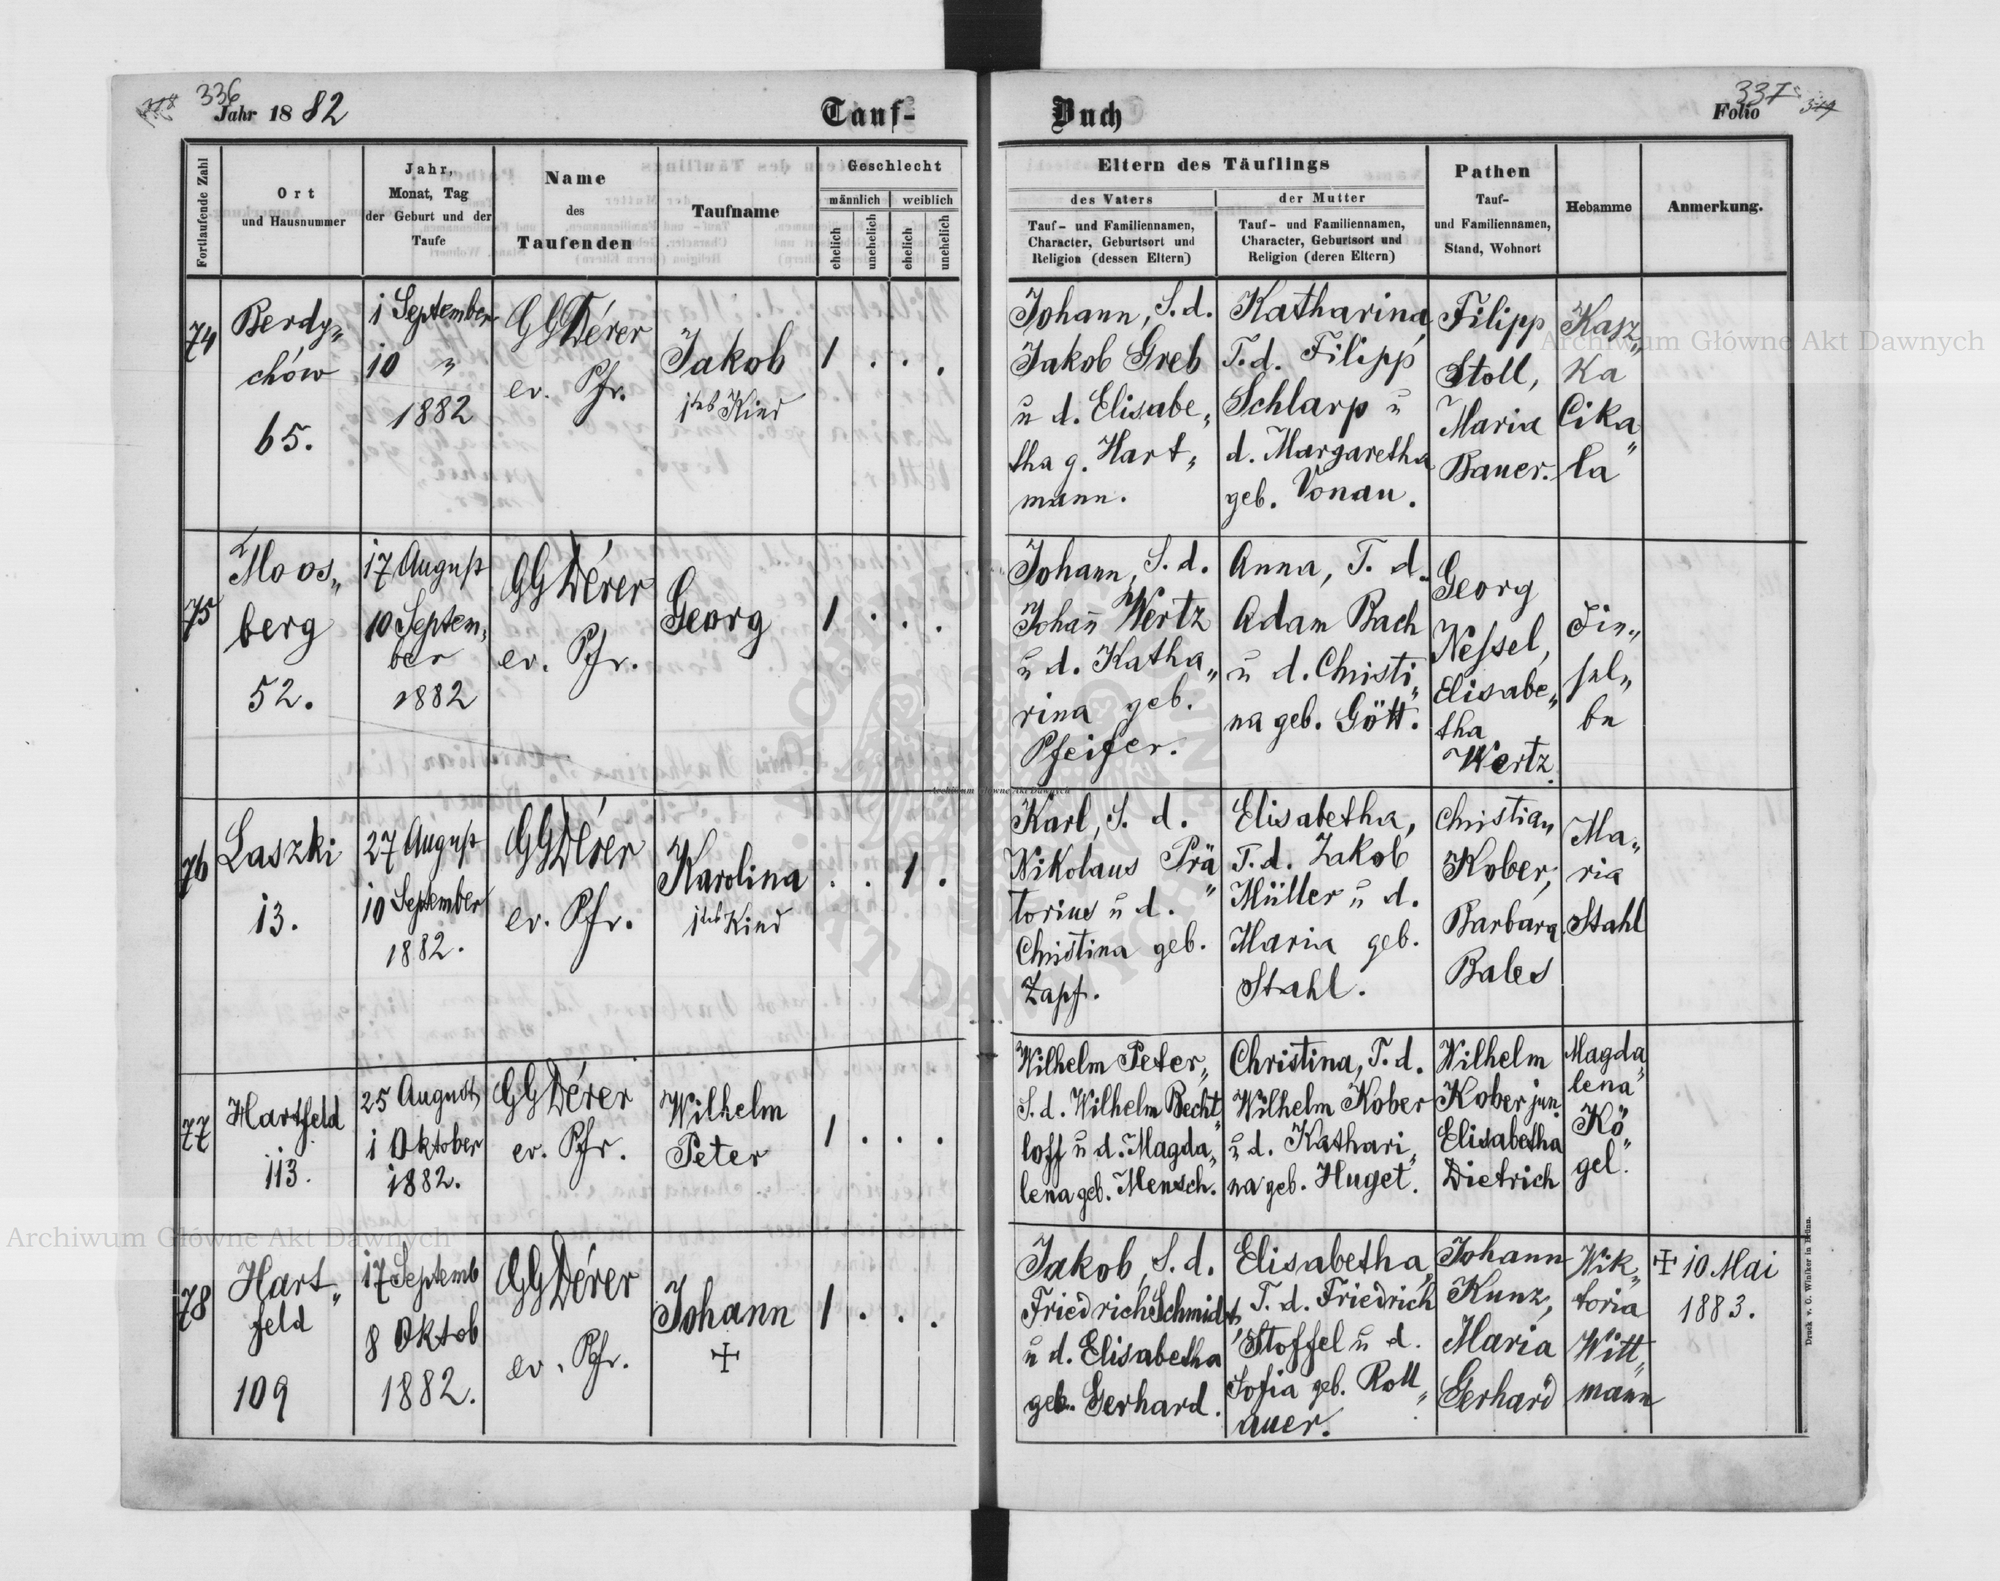 336
Jahr 1882
Tauf-
Buch
337
Folio 319
Fortlaufende Zahl
Ort
und Hausnummer
Jahr,
Monat, Tag
der Geburt und der
Taufe
Name
des
Taufenden
Taufname
Geschlecht
männlich
weiblich
ehelich
unehelich
ehelich
unehelich
Eltern des Täuflings
des Vaters
Tauf- und Familiennamen,
Character, Geburtsort und
Religion (dessen Eltern)
der Mutter
Tauf- und Familiennamen,
Character, Geburtsort und
Religion (deren Eltern)
Pathen
Tauf-
und Familiennamen,
Stand, Wohnort
Hebamme
Anmerkung.
74
Berdy„
chów
65.
1 September
10 „
1882
GGDérer
ev. Pfr.
Jakob
1tes Kind
1 . . .
Johann, S. d.
Jakob Greb
u d. Elisabe„
tha g. Hart„
mann.
Katharina,
T. d. Filipp
Schlarp u
d. Margaretha
geb. Vonau.
Filipp
Stoll,
Maria
Bauer.
Kasz„
ka
Cika„
la
75
Moos„
berg
52.
17 August
10 Septem„
ber
1882
GGDérer
ev. Pfr.
Georg
1 . . .
Johann, S. d.
Johañ Wertz
u d. Katha„
rina geb.
Pfeifer.
Anna, T. d.
Adam Bach
u d. Christi„
na geb. Gött.
Georg
Nessel,
Elisabe„
tha
Wertz.
76
Laszki
13.
27 August
10 September
1882.
GGDérer
ev. Pfr.
Karolina
1tes Kind
. . 1 .
Karl, S. d.
Nikolaus Prä„
torius u d.
Christina geb.
Zapf.
Elisabetha,
T. d. Jakob
Müller u d.
Maria geb.
Stahl.
Christian
Kober,
Barbara
Bales
Ma„
ria
Stahl
77
Hartfeld
113.
25 August
1 Oktober
1882.
GGDérer
ev. Pfr.
Wilhelm
Peter
1 . . .
Wilhelm Peter,
S. d. Wilhelm Becht„
loff u d. Magda„
lena geb. Mensch.
Christina, T. d.
Wilhelm Kober
u d. Kathari„
na geb. Huget.
Wilhelm
Kober jun.
Elisabetha
Dietrich
Magda„
lena
Kö„
gel.
78
Hart„
feld
109
17 Septemb
8 Oktob
1882.
GGDérer
ev. Pfr.
Johann
+
1 . . .
Jakob, S. d.
Friedrich Schmidt,
u d. Elisabetha
geb. Gerhard.
Elisabetha,
T. d. Friedrich
Stoffel u d.
Sofia geb. Roll„
auer.
Johann
Kunz,
Maria
Gerhard
Wik„
toria
Witt„
mann
+ 10 Mai
1883.
Druck v. C. Winiker in Brünn.
Archiwum Główne Akt Dawnych
Archiwum Główne Akt Dawnych
Archiwum Główne Akt Dawnych